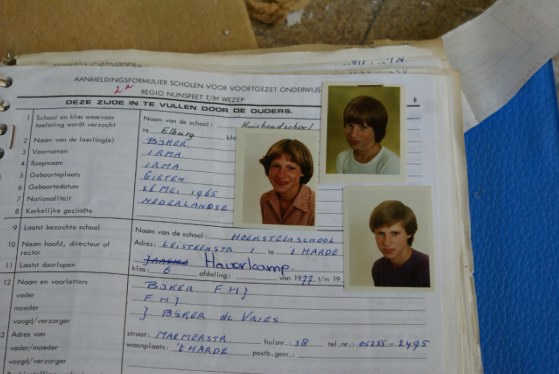 AANMELDINGSFORMULIER SCHOLEN VOOR VOORTGEZET ONDERWIJS
REGIO NUNSPEET T/M WEZEP
2e
DEZE ZIJDE IN TE VULLEN DOOR DE OUDERS.
1 School en klas waarvoor toelating wordt verzocht
Naam van de school: Huishoudschool
te Elburg
2 Naam van de leerling(e) BIJKER
3 Voornamen IRMA
4 Roepnaam IRMA
5 Geboorteplaats GIETEN
6 Geboortedatum MEI 1965
7 Nationaliteit NEDERLANDSE
8 Kerkelijke gezindte
9 Laatst bezochte school Naam van de school: HOEKSTEENSCHOOL
10 Naam hoofd, directeur of rector Adres: LEISTEENSTR 1 te 't HARDE
Haverkamp
11 Laatst doorlopen klas: 6 afdeling: van 1977 t/m 19
12 Naam en voorletters BIJKER F.H.J
vader F H J
moeder
voogd/verzorger } BIJKER de VRIES
13 Adres van straat: MARMERSTR huisnr.: 38 tel.nr.: 05255-2495
vader/moeder woonplaats: 't HARDE postb.gem.:
voogd/verzorger